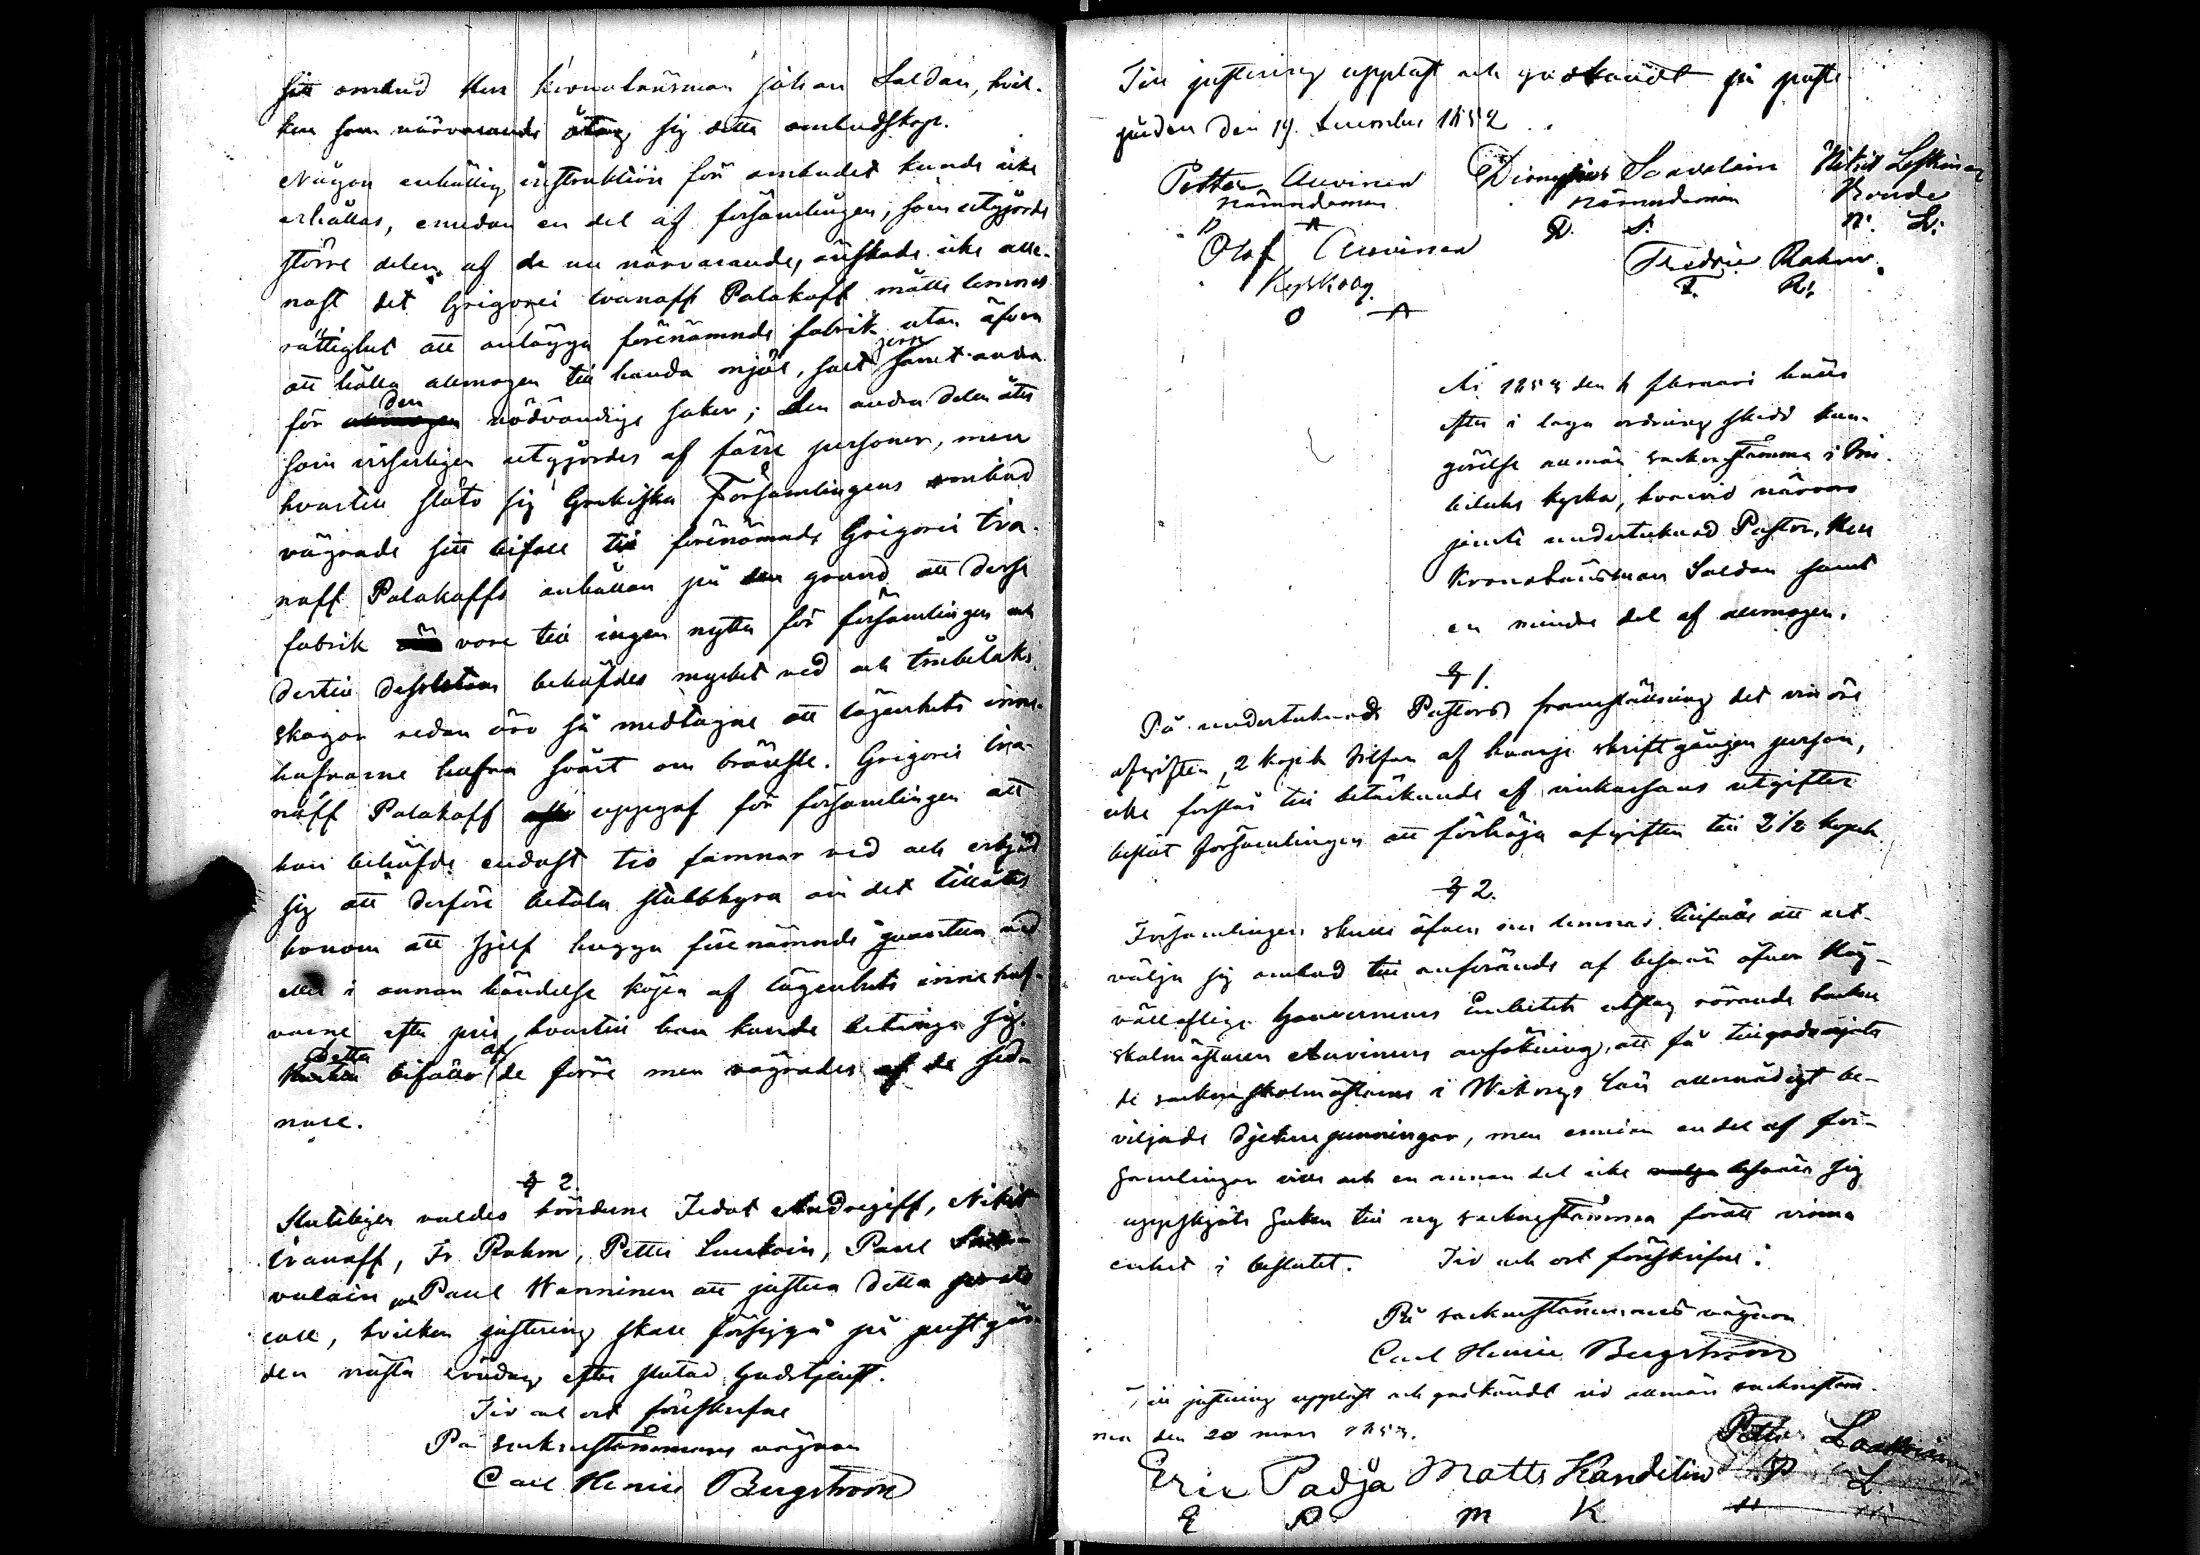 sitt ombud Herr Kronolänsman Johan Soldan, hvil-
ken som närvarande åtog sig detta ombudskap.
Någon enhällig instruktion för ombudet kunde icke
erhållas, emedan en del af församlingen, som utgjorde
större delen af de nu närvarande, önskade icke alle-
nast det Grigorei Ivanoff Palakoff måtte lemnas
rättighet att anlägga förenämnde fabrik utan äfven
att hålla allmogen till handa mjöl, salt jern samt andra
för den nödvändiga saker; den andra delen åter
som visserligen utgjordes af färre personer, men
hvartill slöto sig Grekiska Församlingens ombud
vägrade sitt bifall till förenämnde Grigorei Iva-
noff Palakoffs anhållan på den grund att desse
fabrik vore till ingen nytta för församlingen och
dertill dessutom behöfdes mycket ved och Imbilaks
skogar redan äro så medtagne att lägenhets inne-
hafvarne hafva svårt om bränsle. Grigorei Iva-
noff Palakoff uppgaf för församlingen att
han behöfde endast tio famnar ved och erbjöd
sig att derföre betala stubbhyra om det tillåtes
honom att sjelf hugga förenämnde quantum ved
eller i annan händelse köpa af lägenhets innehaf-
varne efter pris, hvartill han kunde betinga sig.
Detta bifölls af de förre men vägrades af de sed-
nare.
§ 2.
Slutligen valdes bönderne Fedot Andrejeff, Nikit
Ivanoff, Fr. Rahm, Petter Laukain, Paul
valain och Paul Wanninen att justera detta proto
coll, hvilken justering skall försiggå på prestgår-
den nästa söndag efter slutad Gudstjenst.
Tid och ort förskrifne
På sockenstämmans vägnar
Carl Henric Bergström
Till justering uppläst och godkändt på prest-
gården den 19. December 1852
Petter Auvinen Dionysius Saavalain Nikit Leskinen
Nämndeman Nämndeman Bonde
P A D. S. N. L.
Olof Auvinen Fredric Rahm.
Kyrkvärd F. R.
O A
År 1853 den 6 februari hölls
efter i laga ordning skedd kun-
görelse allmän sockenstämma i Im-
bilaks kyrka, hvarvid närvoro
jemte undertecknad Pastor, Herr
Kronolänsman Soldan samt
en mindre del af allmogen.
§ 1.
På undertecknads Pastors framställning det vin öre
afgiften, 2 kopek silfver af hvarje skriftgången person,
icke förslår till betäckande af vinkassans utgifter
beslöt församlingen att förhöja afgiften till 2 1/2 kopek.
§ 2.
Församlingen skulle äfven nu lemnas tillfälle att ut-
välja sig ombud till anförande af besvär öfver Hög-
vällofliga Gouverneurs Embetets utslag rörande socken
skolmästaren Auvinens ansökning, att få tillgodonjuta
de sockenskolmästarne i Wiborgs län allernådigst be-
viljade djeknepenningar, men emedan en del af för-
samlingen ville och en annan del icke besvära sig
uppskjöts saken till ny sockenstämma föratt vinna
enhet i beslutet. Tid och ort förskrifne:
På sockenstämmans vägnar
Carl Henric Bergström
Till justering uppläst och godkändt vid allmän sockenstäm-
ma den 20 mars 1853.
Eric Padja Matts Kandelin Petter
E P M K P L